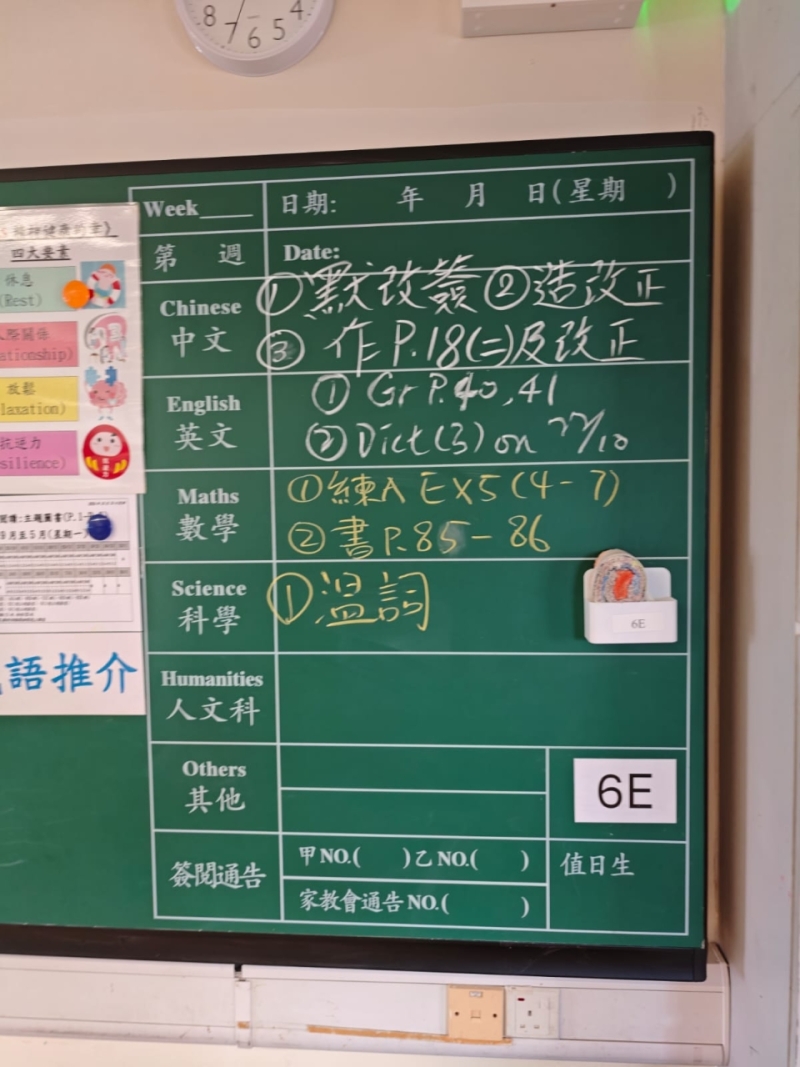 8 7 6 5 4
Week
日期: 年 月 日(星期 )
第 週
Date:
四大要素
休息
(Rest)
放鬆
抗逆力
語推介
Chinese
中文
① 默改簽 ② 造改正
③ 作 P.18(二)及改正
English
英文
① Gr P.40,41
② Dict(3) on 22/10
Maths
數學
① 練A EX5(4-7)
② 書P.85-86
Science
科學
① 溫詞
6E
Humanities
人文科
Others
其他
6E
簽閱通告
甲NO.( )乙NO.( )
家教會通告NO.( )
值日生